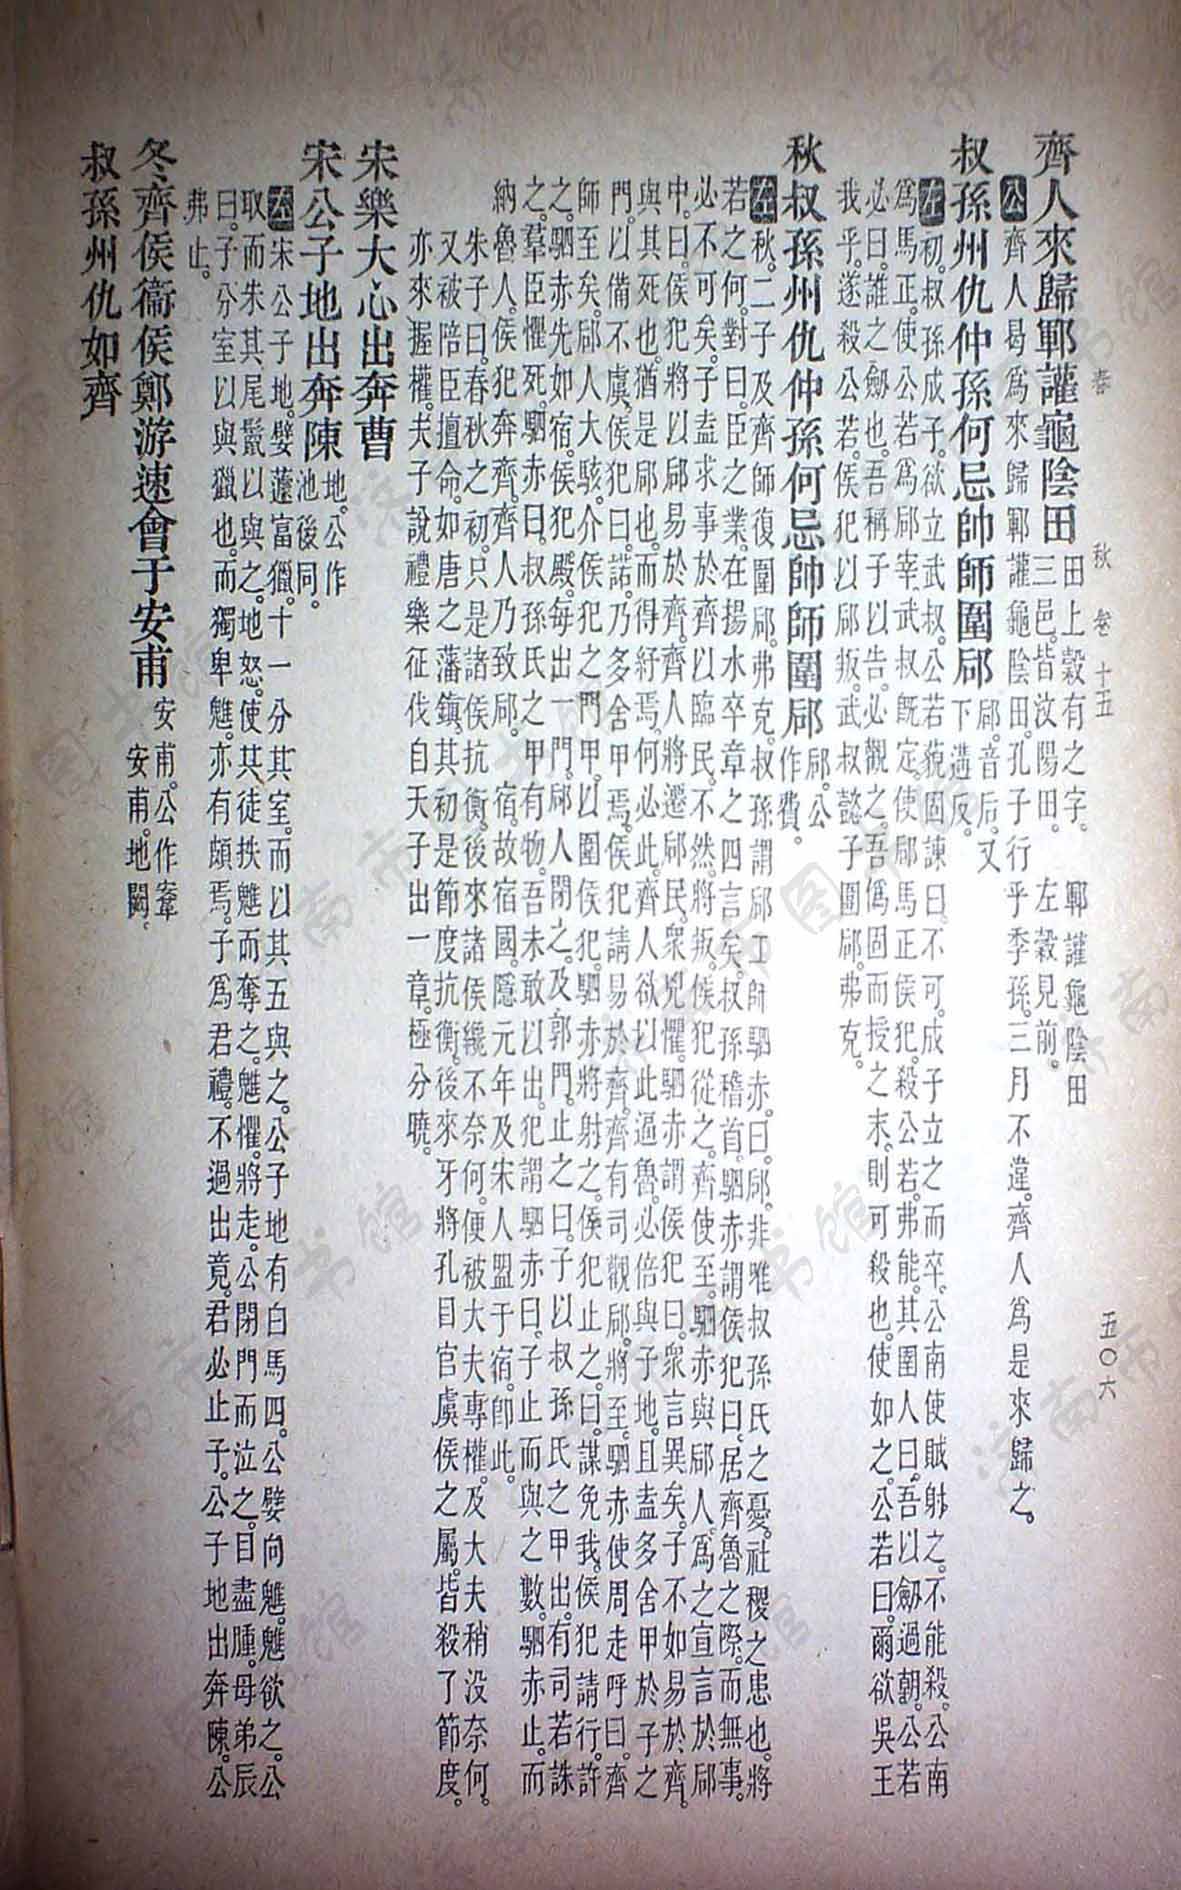 春　秋　卷十五　五〇六
齊人來歸鄆讙龜陰田 田上穀有之字。　鄆讙龜陰田
三邑。皆汶陽田。　左穀見前。
公 齊人曷爲來歸鄆讙龜陰田。孔子行乎季孫。三月不違。齊人爲是來歸之。
叔孫州仇仲孫何忌帥師圍郈 郈。音后。又
下遘反。
左 初。叔孫成子。欲立武叔。公若藐固諫曰。不可。成子立之而卒。公南使賊射之。不能殺。公南
爲馬正。使公若爲郈宰。武叔既定。使郈馬正侯犯。殺公若。弗能。其圉人曰。吾以劒過朝。公若
必曰。誰之劒也。吾稱子以告。必觀之。吾僞固而授之末。則可殺也。使如之。公若曰。爾欲吳王
我乎。遂殺公若。侯犯以郈叛。武叔懿子圍郈。弗克。
秋叔孫州仇仲孫何忌帥師圍郈 郈。公
作費。
左 秋。二子及齊師復圍郈。弗克。叔孫謂郈工師駟赤。曰。郈。非唯叔孫氏之憂。社稷之患也。將
若之何。對曰。臣之業。在揚水卒章之四言矣。叔孫稽首。駟赤謂侯犯曰。居齊魯之際。而無事。
必不可矣。子盍求事於齊。以臨民。不然。將叛。侯犯從之。齊使至。駟赤與郈人。爲之宣言於郈
中。曰。侯犯將以郈易於齊。齊人將遷郈民。衆兇懼。駟赤謂侯犯曰。衆言異矣。子不如易於齊。
與其死也。猶是郈也。而得紓焉。何必此。齊人欲以此逼魯。必倍與子地。且盍多舍甲於子之
門。以備不虞。侯犯曰。諾。乃多舍甲焉。侯犯請易於齊。齊有司觀郈。將至。駟赤使周走呼曰。齊
師至矣。郈人大駭。介侯犯之門甲。以圍侯犯。駟赤將射之。侯犯止之。曰。謀免我。侯犯請行。許
之。駟赤先如宿。侯犯殿。每出一門。郈人閉之。及郭門。止之。曰。子以叔孫氏之甲出。有司若誅
之。羣臣懼死。駟赤曰。叔孫氏之甲有物。吾未敢以出。犯謂駟赤曰。子止而與之數。駟赤止。而
納魯人。侯犯奔齊。齊人乃致郈。宿。故宿國。隱元年及宋人盟于宿。卽此。
朱子曰。春秋之初。只是諸侯抗衡。後來諸侯纔不奈何。便被大夫專權。及大夫稍没奈何。
又被陪臣擅命。如唐之藩鎭。其初是節度抗衡。後來牙將孔目官虞侯之屬。皆殺了節度。
亦來握權。夫子說禮樂征伐自天子出一章。極分曉。
宋樂大心出奔曹
宋公子地出奔陳 地。公作
池。後同。
左 宋公子地。嬖蘧富獵。十一分其室。而以其五與之。公子地有白馬四。公嬖向魋。魋欲之。公
取而朱其尾鬣以與之。地怒。使其徒抶魋而奪之。魋懼。將走。公閉門而泣之。目盡腫。母弟辰
曰。子分室以與獵也。而獨卑魋。亦有頗焉。子爲君禮。不過出竟。君必止子。公子地出奔陳。公
弗止。
冬齊侯衞侯鄭游速會于安甫 安甫。公作鞌
安甫。地闕。
叔孫州仇如齊